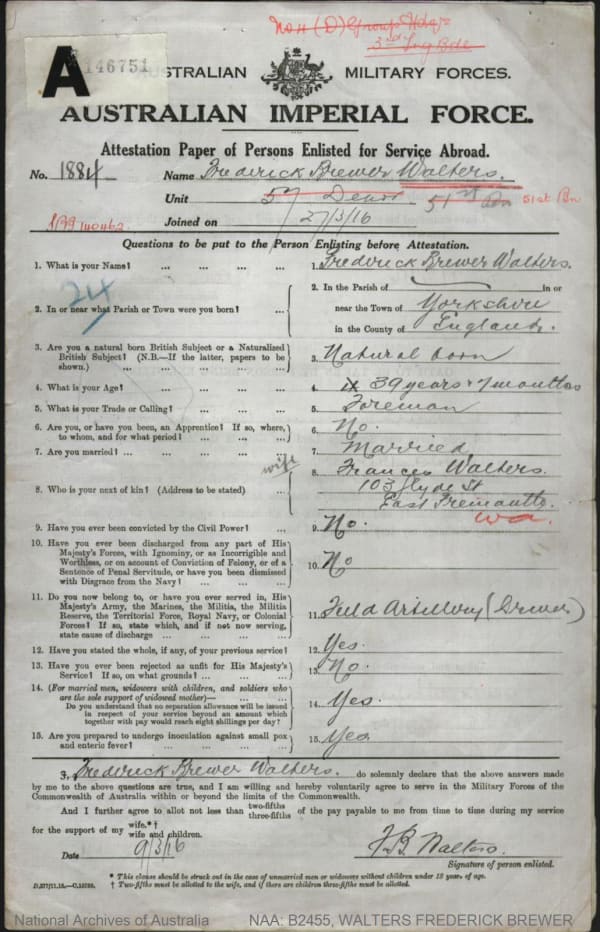 3rd Trg Bde
A 146751
AUSTRALIAN MILITARY FORCES.
AUSTRALIAN IMPERIAL FORCE.
Attestation Paper of Persons Enlisted for Service Abroad.
No. 1884 Name Frederick Brewer Walters.
Unit 57 Depot 51st Bn 51st Bn
Joined on 27/3/16
Questions to be put to the Person Enlisting before Attestation.
1. What is your Name? ... ... ... ... 1. Frederick Brewer Walters.
24
2. In or near what Parish or Town were you born? ... 2. In the Parish of in or
near the Town of Yorkshire
in the County of England.
3. Are you a natural born British Subject or a Naturalized
British Subject? (N.B.—If the latter, papers to be
shown.) ... ... ... ... ... 3. Natural born
4. What is your Age? ... ... ... ... 4. 39 years & 7 months
5. What is your Trade or Calling? ... ... ... 5. Foreman
6. Are you, or have you been, an Apprentice? If so, where,
to whom, and for what period? ... ... ... 6. No.
7. Are you married? ... ... ... ... ... 7. Married
wife
8. Who is your next of kin? (Address to be stated) ... 8. Frances Walters.
103 Hyde St
East Fremantle.
W.A.
9. Have you ever been convicted by the Civil Power? ... 9. No.
10. Have you ever been discharged from any part of His
Majesty's Forces, with Ignominy, or as Incorrigible and
Worthless, or on account of Conviction of Felony, or of a
Sentence of Penal Servitude, or have you been dismissed
with Disgrace from the Navy? ... ... ... 10. No
11. Do you now belong to, or have you ever served in, His
Majesty's Army, the Marines, the Militia, the Militia
Reserve, the Territorial Force, Royal Navy, or Colonial
Forces? If so, state which, and if not now serving,
state cause of discharge ... ... ... ... 11. Field Artillery (Driver)
12. Have you stated the whole, if any, of your previous service? 12. Yes.
13. Have you ever been rejected as unfit for His Majesty's
Service? If so, on what grounds? ... ... ... 13. No.
14. (For married men, widowers with children, and soldiers who
are the sole support of widowed mother)—
Do you understand that no separation allowance will be issued
in respect of your service beyond an amount which
together with pay would reach eight shillings per day? 14. Yes.
15. Are you prepared to undergo inoculation against small pox
and enteric fever? ... ... ... ... 15. Yes
I, Frederick Brewer Walters. do solemnly declare that the above answers made
by me to the above questions are true, and I am willing and hereby voluntarily agree to serve in the Military Forces of the
Commonwealth of Australia within or beyond the limits of the Commonwealth.
And I further agree to allot not less than two-fifths three-fifths of the pay payable to me from time to time during my service
for the support of my wife.*† wife and children.
Date 9/3/16 F.B. Walters.
Signature of person enlisted.
* This clause should be struck out in the case of unmarried men or widowers without children under 18 years of age.
† Two-fifths must be allotted to the wife, and if there are children three-fifths must be allotted.
National Archives of Australia NAA: B2455, WALTERS FREDERICK BREWER